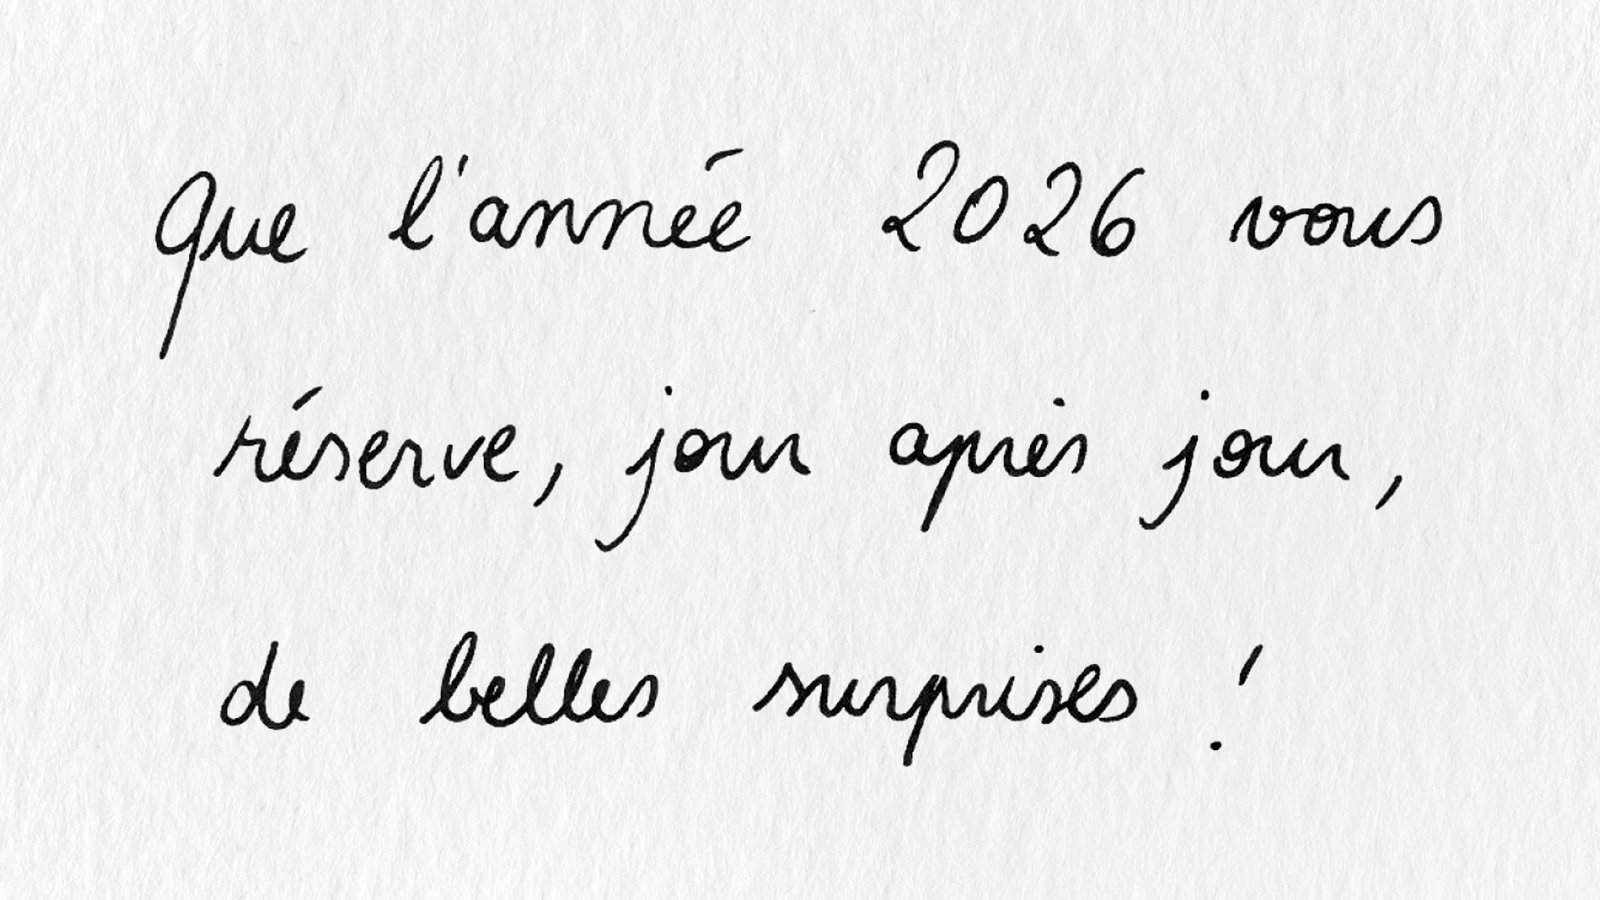 Que l'année 2026 vous
réserve, jour après jour,
de belles surprises !